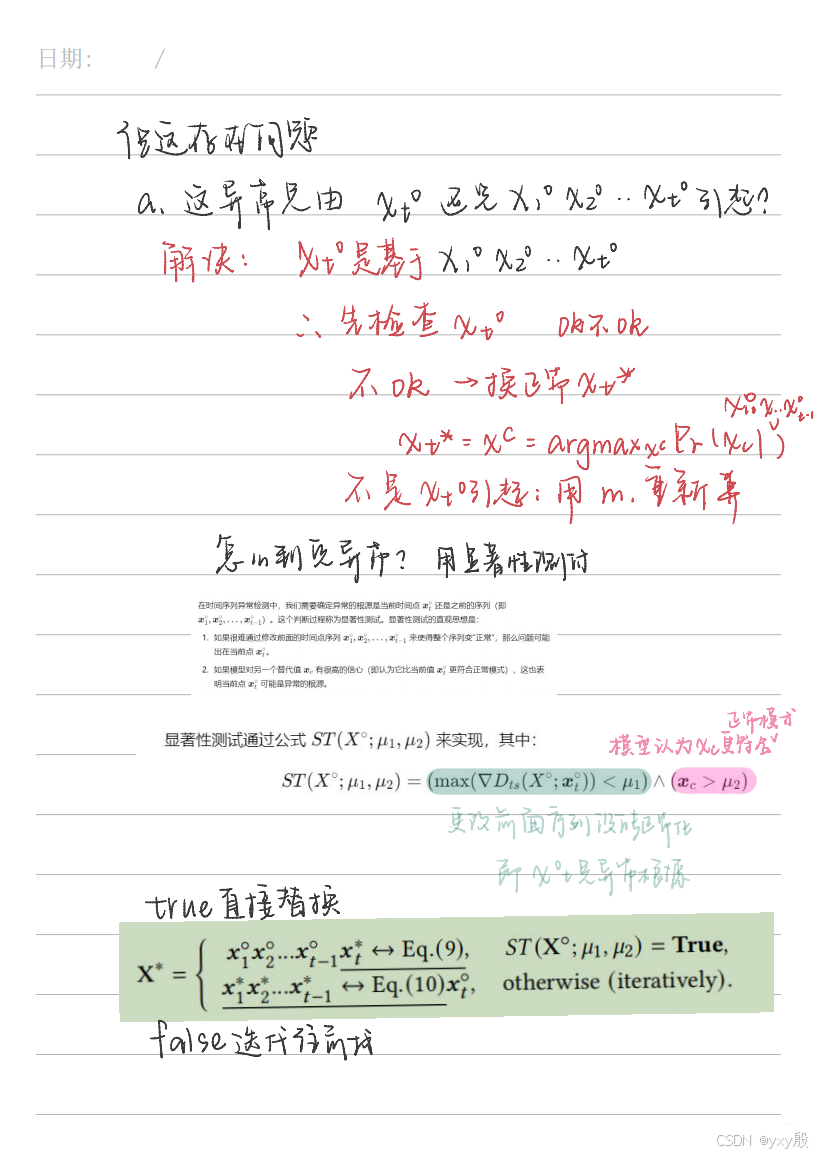 日期: /
但这存在问题
a. 这异常是由 xt° 还是 x1° x2° ·· xt° 引起?
解决: xt° 是基于 x1° x2° ·· xt°
∴ 先检查 xt° ok不ok
不ok → 换正常 xt*
xt* = xᶜ = argmax xc Pr(xc| x1°, x··x°t-1)
不是 xt° 引起: 用 m. 重新算
怎么判定异常? 用显著性测试
在时间序列异常检测中，我们需要确定异常的根源是当前时间点 x°t 还是之前的序列（即
x°1, x°2, . . . , x°t−1）。这个判断过程称为显著性测试。显著性测试的直观思想是：
1. 如果很难通过修改前面的时间点序列 x°1, x°2, . . . , x°t−1 来使得整个序列变“正常”，那么问题可能
出在当前点 x°t。
2. 如果模型对另一个替代值 xc 有很高的信心（即认为它比当前值 x°t 更符合正常模式），这也表
明当前点 x°t 可能是异常的根源。
正常模式
模型认为 xc 更符合
显著性测试通过公式 ST(X°; μ1, μ2) 来实现，其中：
ST(X°; μ1, μ2) = (max(∇Dts(X°; x°t)) < μ1) ∧ (xc > μ2)
更改前面序列没能正常化
即 x°t 是异常根源
true 直接替换
X* = { x°1x°2...x°t−1x*t ↔ Eq.(9), ST(X°; μ1, μ2) = True,
x*1x*2...x*t−1 ↔ Eq.(10)x°t, otherwise (iteratively).
false 迭代往前找
CSDN @yxy殷